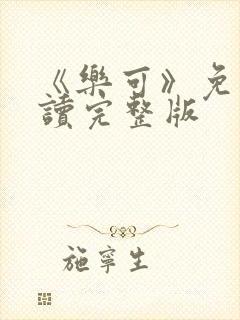 《樂可》免
讀完整版
施寧生